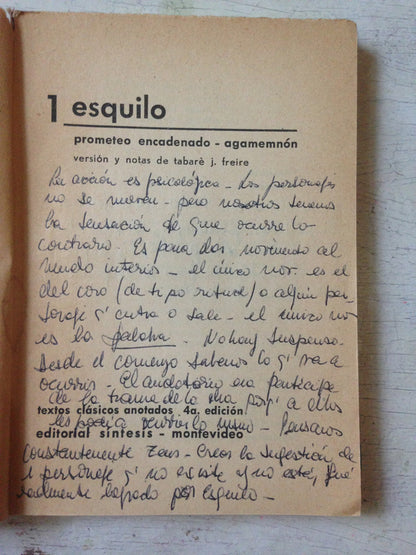 1 esquilo
prometeo encadenado - agamemnón
versión y notas de tabarè j. freire
La acción es psicológica - Los personajes
no se mueven - pero nosotros tenemos
la sensación de que ocurre lo
contrario. Es para dar movimiento al
mundo interior - el único mov. es el
del coro (de tipo ritual) o algún per-
sonaje q' entra o sale - el único
es la palabra. No hay suspenso.
Desde el comienzo sabemos lo q' va a
ocurrir - El auditorio era partícipe
de la trama de la obra porq' a ellos
les podía ocurrir lo mismo - Pensamos
textos clásicos anotados, 4a. edición
editorial síntesis - montevideo
constantemente Zeus - Crea la sugestión de
1 personaje q' no existe y no está,
realmente logrado por Esquilo -